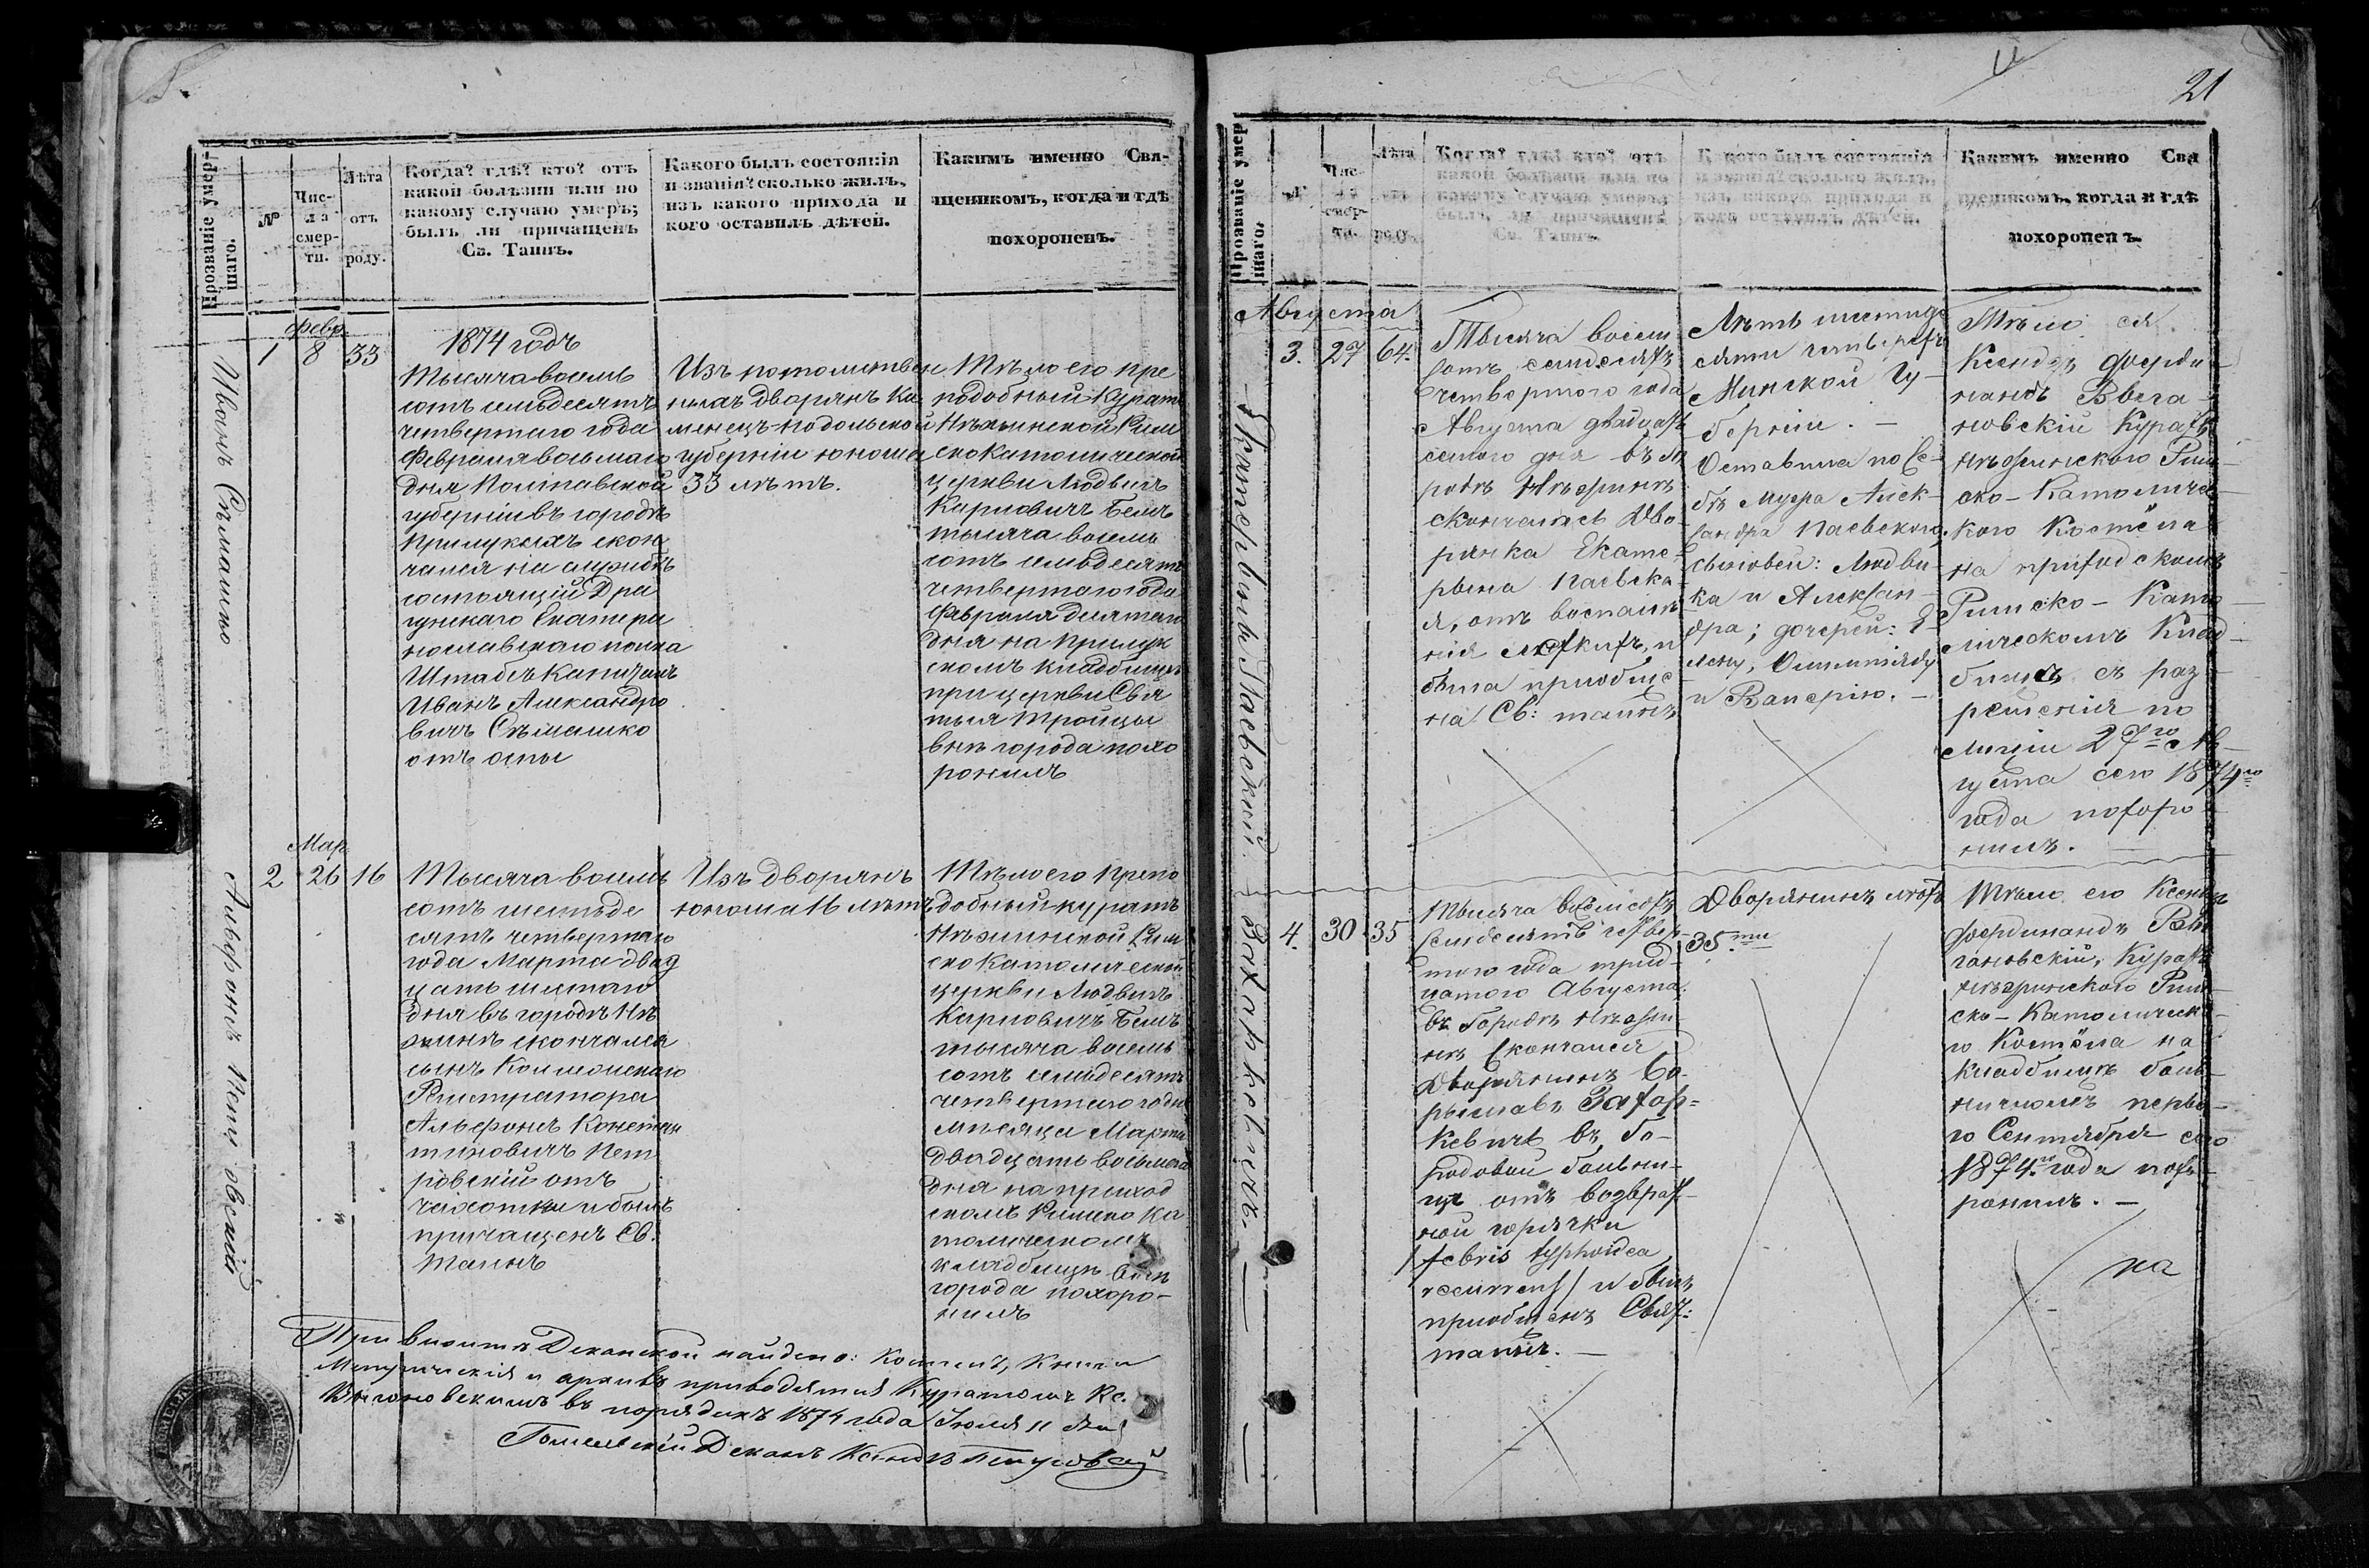 21
Прозваніе умер-
шаго.
№
Чис-
ла
смер-
ти.
Лѣта
отъ
роду.
Когда? гдѣ? кто? отъ
какой болѣзни или по
какому случаю умеръ;
былъ ли причащенъ
Св. Таинъ.
Какого былъ состоянія
и званія? сколько жилъ,
изъ какого прихода и
кого оставилъ дѣтей.
Какимъ именно Свя-
щенникомъ, когда и гдѣ
похороненъ.
Иванъ Сѣмашко
Февр.
1 8 33
1874 годъ
Тысяча восемь
сотъ семьдесятъ
четвертаго года
Февраля восьмаго
дня Полтавской
губерніи въ городѣ
Прилукахъ скон
чался на службѣ
состоящій Дра
гунскаго Екатери
нославскаго полка
Штабсъ Капитанъ
Иванъ Александро
вичъ Сѣмашко
отъ оспы
Изъ потомствен
ныхъ дворянъ Ка
менецъ-Подольской
губерніи юноша
33 лѣтъ.
Тѣло его пре
подобный Куратъ
Нѣжинской Рим
ско Католической
церкви Людвигъ
Карловичъ Бемъ
тысяча восемь
сотъ семьдесятъ
четвертаго года
Февраля девятаго
дня на Прилук
скомъ кладбищѣ
при церкви Свя
тыя Тройцы
внѣ города похо
ронилъ
Альфонсъ Петровскій
Мар
2 26 16
Тысяча восемь
сотъ шестьде
сятъ четвертаго
года Марта двад
цать шестаго
дня въ городѣ Нѣ
жинѣ скончался
сынъ Коллежскаго
Регистратора
Альфонсъ Констан
тиновичъ Пет
ровскій отъ
чахотки и былъ
причащенъ Св.
Таинъ
Изъ дворянъ
юноша 16 лѣтъ
Тѣло его препо
добный куратъ
Нѣжинской Рим
ско Католической
церкви Людвигъ
Карловичъ Бемъ
тысяча восемь
сотъ семьдесятъ
четвертаго года
мѣсяца Марта
двадцать восьмаго
дня на приход
скомъ Римско Ка
толическомъ
кладбищѣ внѣ
города похоро-
нилъ
При визитѣ Деканской найдено: Костелъ, Книги
Метрическія и архивъ приводятся Куратомъ Кс.
въ порядокъ 1874 года Іюля 11 дня
Гомельскій Деканъ Ксендз
Прозваніе умер
шаго.
№
Чис-
ла
смер-
ти.
Лѣта
отъ
роду.
Когда? гдѣ? кто? отъ
какой болѣзни или по
какому случаю умеръ
былъ ли причащенъ
Св. Таинъ.
Какого былъ состоянія
и званія? сколько жилъ,
изъ какого прихода и
кого оставилъ дѣтей.
Какимъ именно Свя
щенникомъ, когда и гдѣ
похороненъ.
Августа
3. 27 64.
Тысяча восем
сотъ семдесятъ
четвертого года
Августа двадцать
семого дня въ го
родѣ Нѣжинѣ
скончалась Дво-
рянка Екате-
рына Паевска
я, отъ воспале
нія легкихъ, и
была приобще-
на Св: таинъ
Лѣтъ шестиде
сяти четырехъ
Минской Гу-
берніи. —
Оставила по Се-
бѣ мужа Алек-
сандра Паевского,
сыновей: Людви-
ка и Алексан-
дра; дочерей: Е-
лену,
и Валерію. —
Тѣло ея
Ксендзъ Ферди-
нандъ
новскій Куратъ
Нѣжинского Рим
ско-Католичес-
кого Костёла
на приходскомъ
Римско-Като-
лическомъ Клад-
бищѣ съ раз-
решенія по
лиціи 27го Ав-
густа сего 1874го
года похоро
нилъ. —
4. 30 35
Тысяча восемсотъ
семдесятъ четвер-
того года трид-
цатого Августа
въ Городѣ Нѣжи-
нѣ Скончался
Дворянинъ Бо-
рыславъ Захар=
кевичъ въ го-
родовой больни-
цѣ отъ возврат-
ной горячки
/febris typhoidea
recurrens/ и былъ
приобщенъ Свят:
таинъ. —
Дворянинъ лѣтъ
35.ти
Тѣло его Ксендзъ
Фердинандъ
гановскій, Куратъ
Нѣжинского Рим-
ско-Католическо-
го Костёла на
кладбищѣ боль-
ничномъ перво-
го Сентября сего
1874.го года похо-
ронилъ. —
на